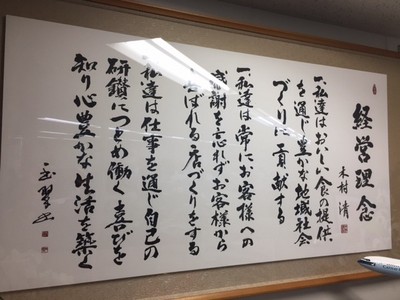 経営理念
木村 清
一、私達はおいしい食の提供
を通じ豊かな地域社会
づくりに貢献する
一、私達は常にお客様への
感謝を忘れずお客様から
ばれる店づくりをする
私達は仕事を通じ自己の
研鑽につとめ働く喜びを
知り心豊かな生活を築く